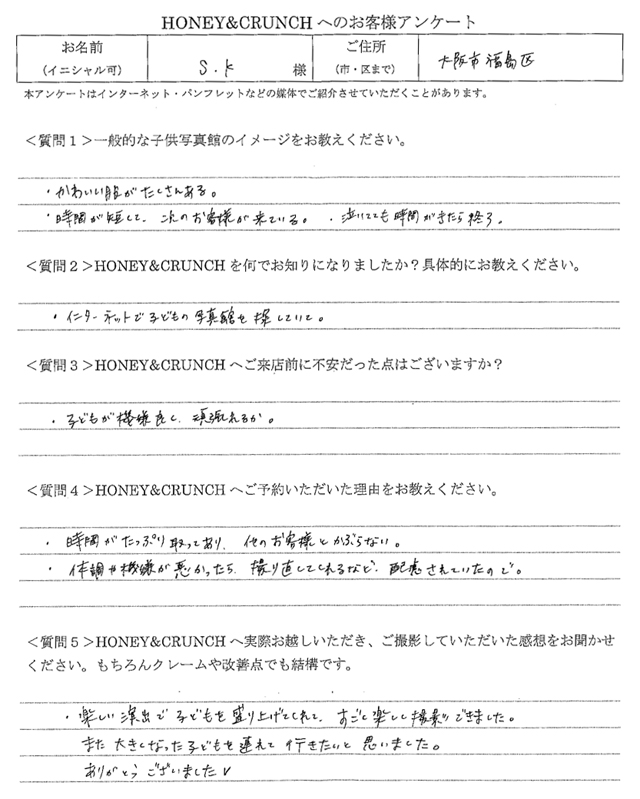 HONEY&CRUNCH へのお客様アンケート
お名前
(イニシャル可)
S.K
様
ご住所
(市・区まで)
大阪市福島区
本アンケートはインターネット・パンフレットなどの媒体でご紹介させていただくことがあります。
<質問1>一般的な子供写真館のイメージをお教えください。
・かわいい服がたくさんある。
・時間が短くて、次のお客様が来ている。 ・泣いてても時間がきたら終了。
<質問2>HONEY&CRUNCH を何でお知りになりましたか?具体的にお教えください。
・インターネットで子どもの写真館を探していて。
<質問3>HONEY&CRUNCH へご来店前に不安だった点はございますか?
・子どもが機嫌良く、頑張れるか。
<質問4>HONEY&CRUNCH へご予約いただいた理由をお教えください。
・時間がたっぷり取ってあり、他のお客様とかぶらない。
・体調や機嫌が悪かったら、撮り直してくれるなど、配慮されていたので。
<質問5>HONEY&CRUNCH へ実際お越しいただき、ご撮影していただいた感想をお聞かせ
ください。もちろんクレームや改善点でも結構です。
・楽しい演出で子どもを盛り上げてくれて、すごく楽しく撮影ができました。
また大きくなった子どもを連れて行きたいと思いました。
ありがとうございました